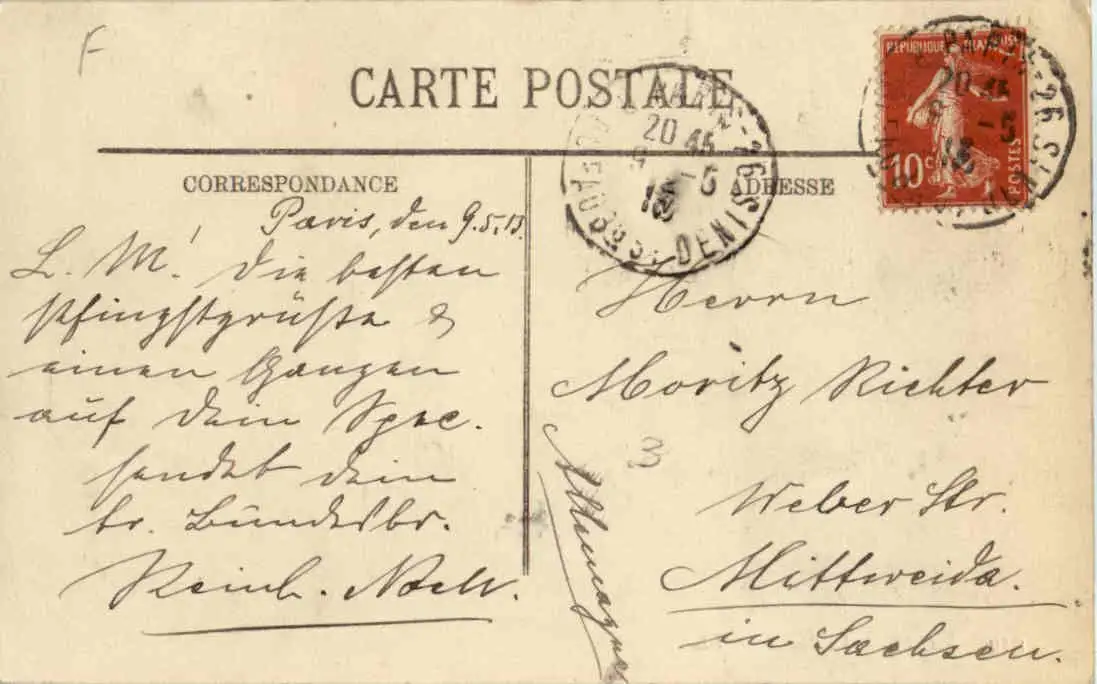 F
CARTE POSTALE
CORRESPONDANCE
ADRESSE
REPUBLIQUE FRANÇAISE
10 c
POSTES
20 45
9 - 5
13
DENIS
Paris, den 9.5.13.
L. M.! Die besten
Pfingstgrüße &
einen Ganzen
auf Dein Spec.
sendet Dein
tr. Bundesbr.
Reinh.
Herrn
Moritz Richter
3
Weber Str.
Mittweida.
in Sachsen.
Allemagne